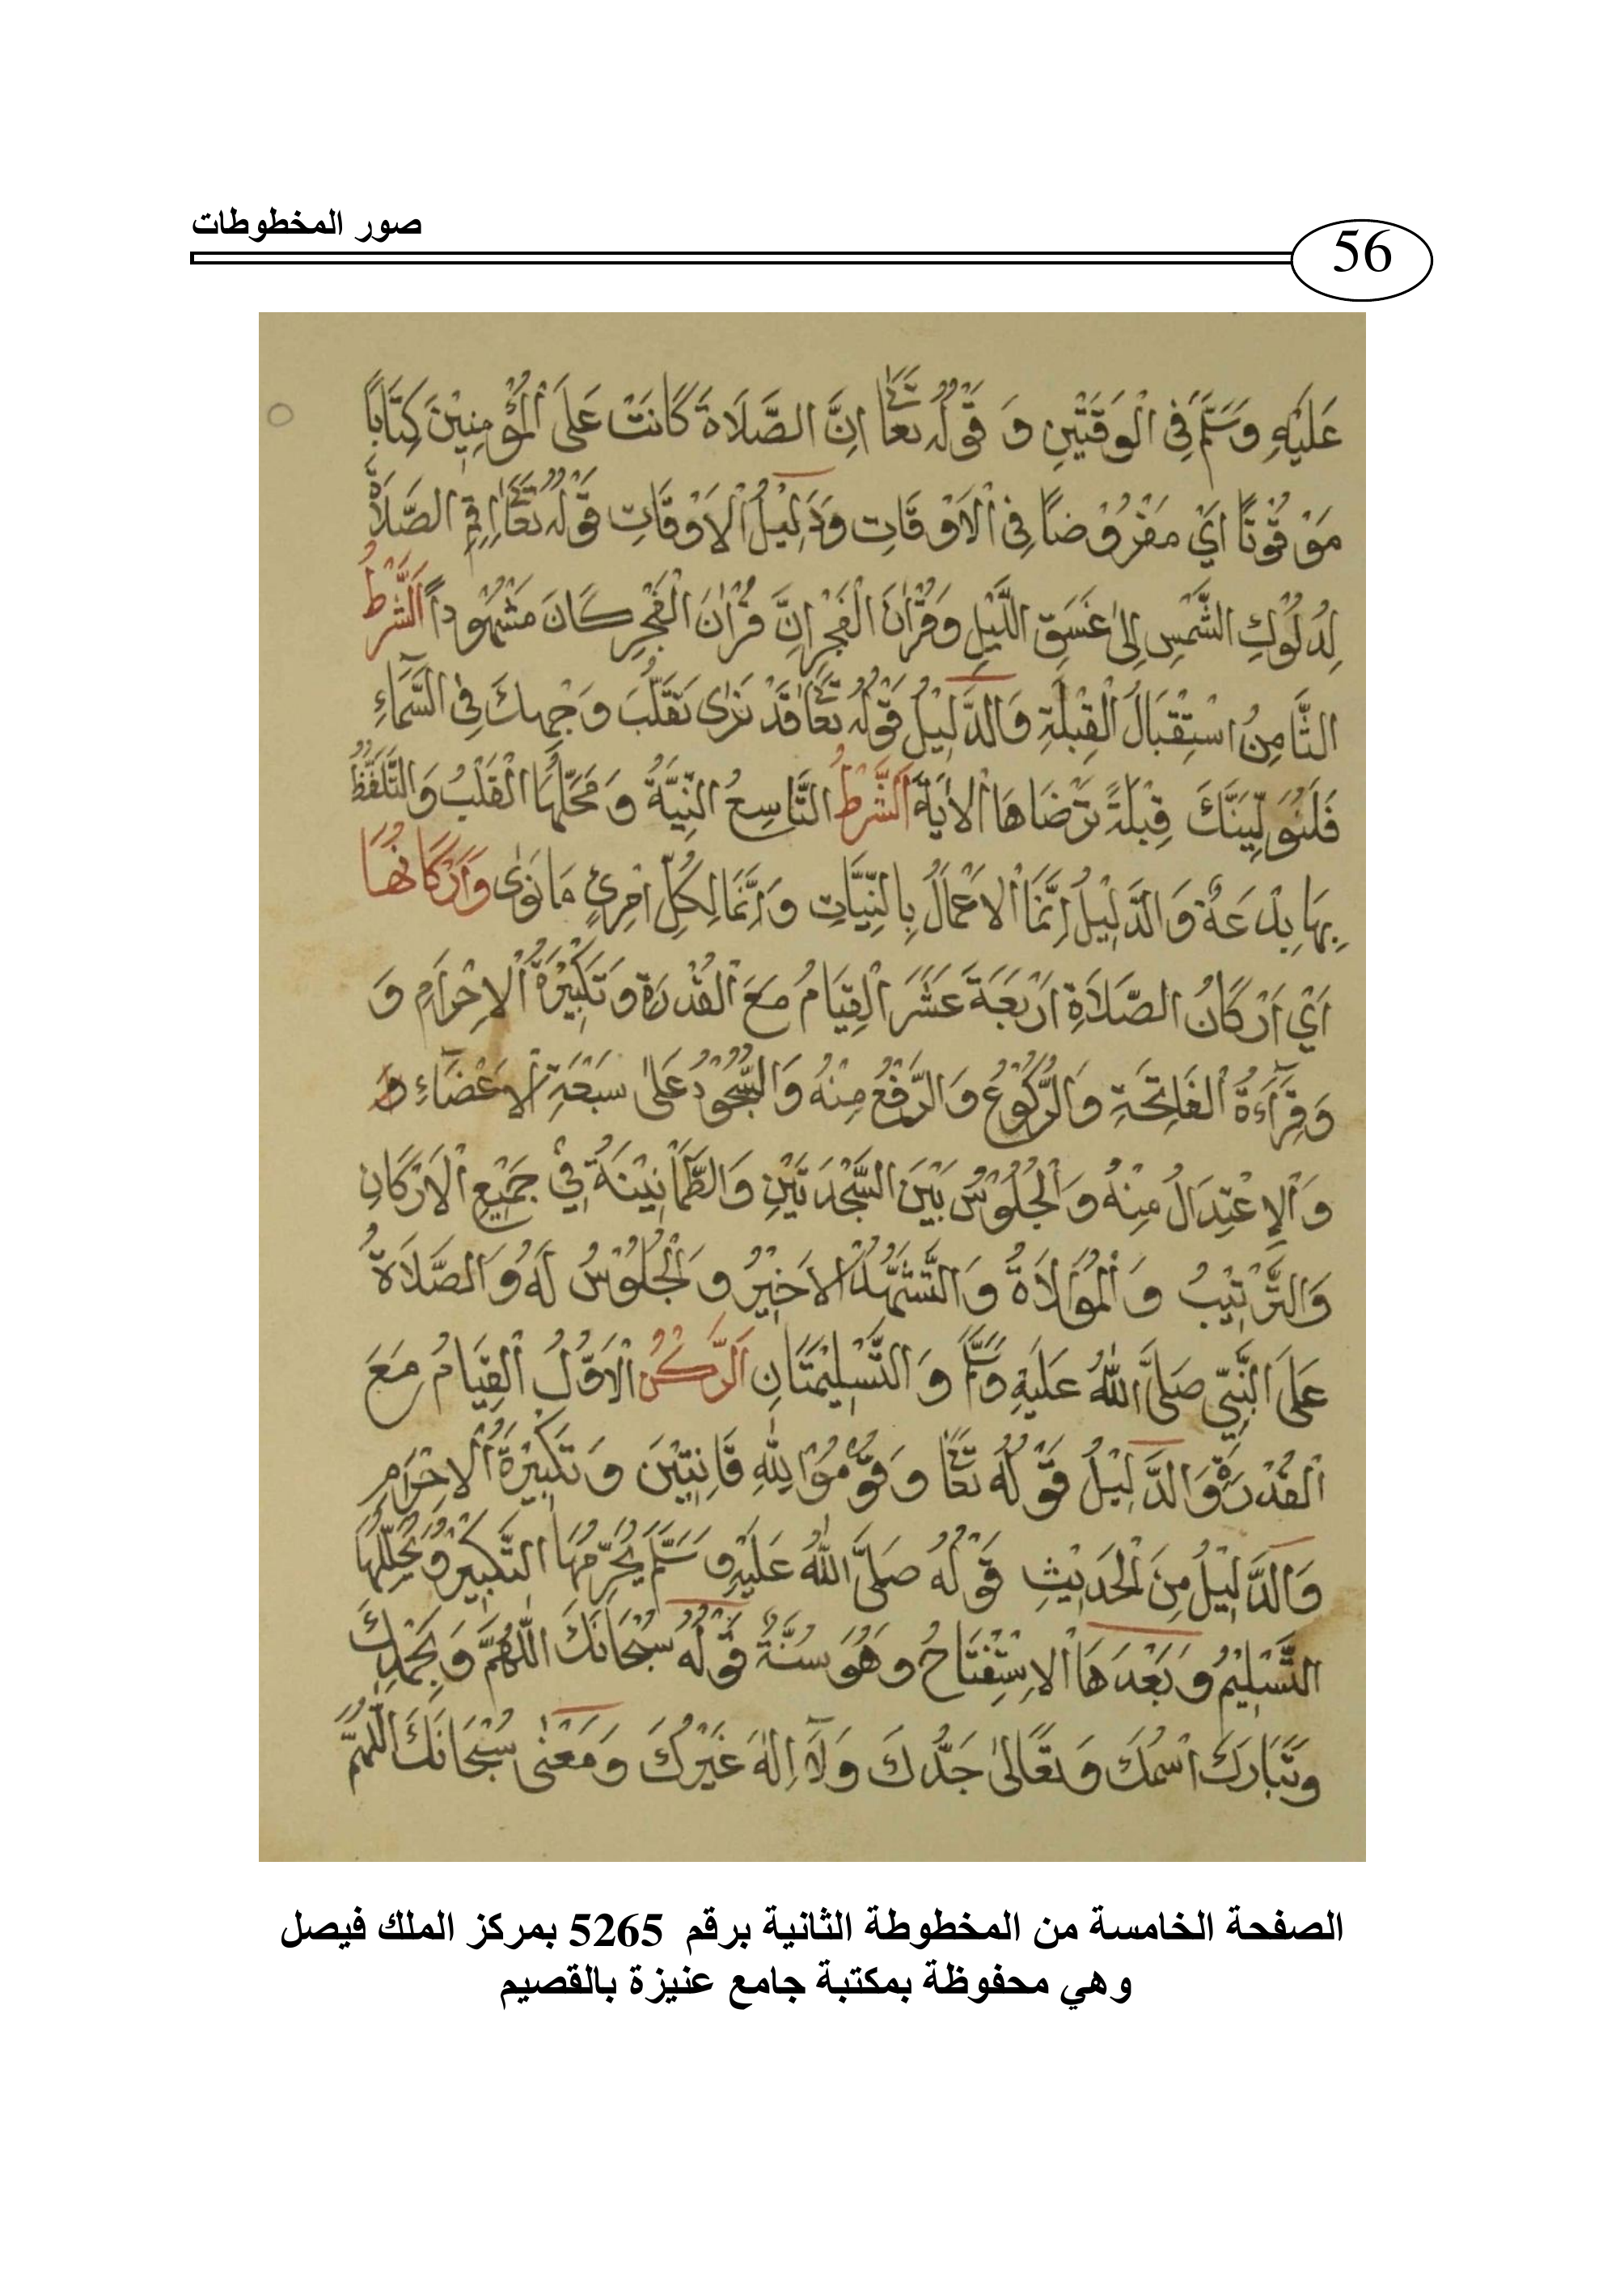 صور المخطوطات
56
عَلَيْهِ وَسَلَّمَ فِي الْوَقْتَيْنِ وَ قَوْلُهُ تَعَا اِنَّ الصَّلَاةَ كَانَتْ عَلَى الْمُؤْمِنِيْنَ كِتَابًا
مَوْقُوْتًا اَيْ مَفْرُوْضًا فِى الْاَوْقَاتِ وَدَلِيْلُ الْاَوْقَاتِ قَوْلُهُ تَعَا اَقِمِ الصَّلَاةَ
لِدُلُوْكِ الشَّمْسِ اِلىٰ غَسَقِ اللَّيْلِ وَقُرْاٰنَ الْفَجْرِ اِنَّ قُرْاٰنَ الْفَجْرِ كَانَ مَشْهُوْدًا اَلشَّرْطُ
الثَّامِنُ اسْتِقْبَالُ الْقِبْلَةِ وَالدَّلِيْلُ قَوْلُهُ تَعَا قَدْ نَرٰى تَقَلُّبَ وَجْهِكَ فِى السَّمَآءِ
فَلَنُوَلِّيَنَّكَ قِبْلَةً تَرْضَاهَا الْاٰيَةَ اَلشَّرْطُ التَّاسِعُ النِّيَّةُ وَمَحَلُّهَا الْقَلْبُ وَالتَّلَفُّظُ
بِهَا بِدْعَةٌ وَالدَّلِيْلُ اِنَّمَا الْاَعْمَالُ بِالنِّيَّاتِ وَاِنَّمَا لِكُلِّ امْرِئٍ مَا نَوٰى وَاَرْكَانُهَا
اَيْ اَرْكَانُ الصَّلَاةِ اَرْبَعَةَ عَشَرَ الْقِيَامُ مَعَ الْقُدْرَةِ وَتَكْبِيْرَةُ الْاِحْرَامِ وَ
وَقِرَآءَةُ الْفَاتِحَةِ وَالرُّكُوْعُ وَالرَّفْعُ مِنْهُ وَالسُّجُوْدُ عَلىٰ سَبْعَةِ الْاَعْضَآءِ وَ
وَالْاِعْتِدَالُ مِنْهُ وَالْجُلُوْسُ بَيْنَ السَّجْدَتَيْنِ وَالطُّمَأْنِيْنَةُ فِيْ جَمِيْعِ الْاَرْكَانِ
وَالتَّرْتِيْبُ وَالْمُوَالَاةُ وَالتَّشَهُّدُ الْاَخِيْرُ وَالْجُلُوْسُ لَهُ وَالصَّلَاةُ
عَلَى النَّبِيِّ صَلَّى اللّٰهُ عَلَيْهِ وَسَلَّمَ وَالتَّسْلِيْمَتَانِ اَلرُّكْنُ الْاَوَّلُ الْقِيَامُ مَعَ
الْقُدْرَةِ وَالدَّلِيْلُ قَوْلُهُ تَعَا وَقُوْمُوْا لِلّٰهِ قَانِتِيْنَ وَتَكْبِيْرَةُ الْاِحْرَامِ
وَالدَّلِيْلُ مِنَ الْحَدِيْثِ قَوْلُهُ صَلَّى اللّٰهُ عَلَيْهِ وَسَلَّمَ تَحْرِيْمُهَا التَّكْبِيْرُ وَتَحْلِيْلُهَا
التَّسْلِيْمُ وَبَعْدَهَا الْاِسْتِفْتَاحُ وَهُوَ سُنَّةٌ قَوْلُهُ سُبْحَانَكَ اللّٰهُمَّ وَبِحَمْدِكَ
وَتَبَارَكَ اسْمُكَ وَتَعَالىٰ جَدُّكَ وَلَآ اِلٰهَ غَيْرُكَ وَمَعْنٰى سُبْحَانَكَ اللّٰهُمَّ
الصفحة الخامسة من المخطوطة الثانية برقم 5265 بمركز الملك فيصل
وهي محفوظة بمكتبة جامع عنيزة بالقصيم